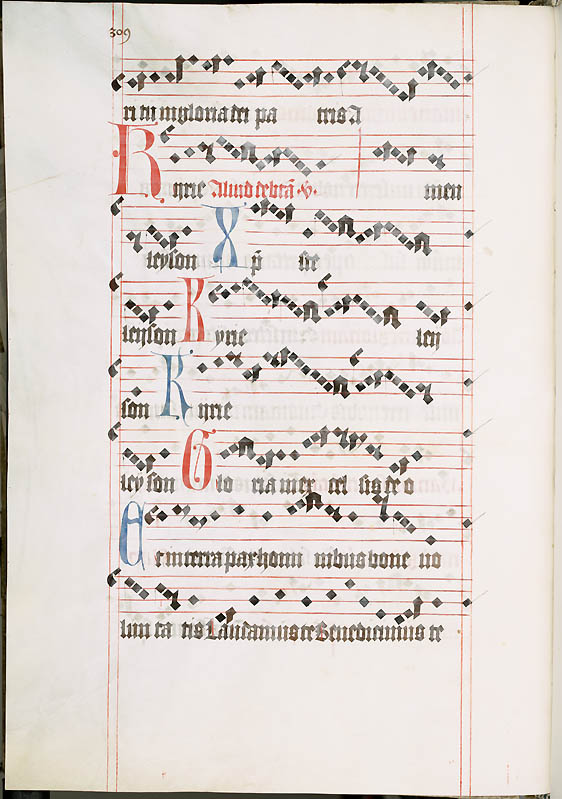 309
ri tu in gloria dei pa tris A
Kyrie Aliud de btā v̄ men
leyson Xp̄ ste
leyson Kyrie ley
son Kyrie
leyson Glo ria in ex cel sis de o
Et in terra pax homi nibus bone uo
lun ta tis Laudamus te Benedicimus te